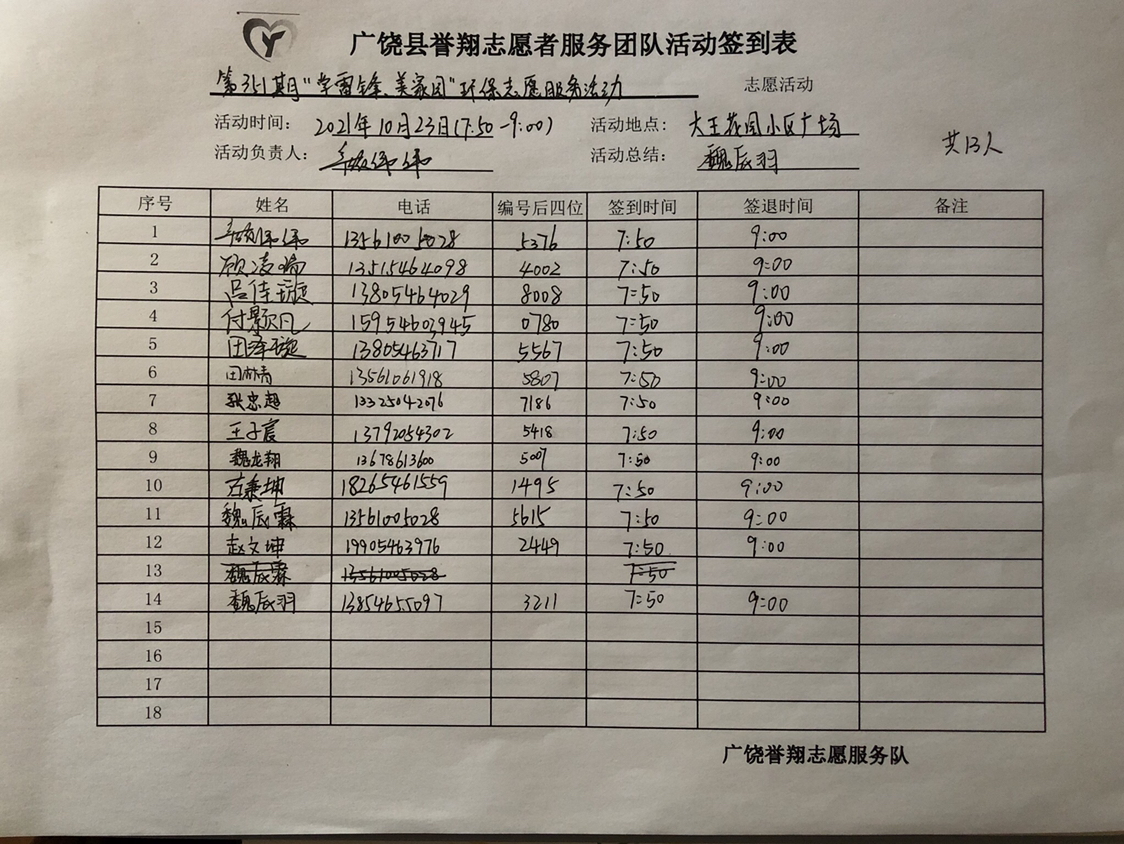 广饶县誉翔志愿者服务团队活动签到表
第351期"学雷锋、美家园"环保志愿服务活动 志愿活动
活动时间: 2021年10月23日(7:50-9:00) 活动地点: 大王花园小区广场
共13人
活动负责人: 活动总结: 魏辰羽
序号 姓名 电话 编号后四位 签到时间 签退时间 备注
1 13561005028 5376 7:50 9:00
2 13515464098 4002 7:50 9:00
3 吕佳璇 13805464029 8008 7:50 9:00
4 付颢凡 15954603945 0780 7:50 9:00
5 田泽璇 13805463717 5567 7:50 9:00
6 13561061918 5807 7:50 9:00
7 张忠超 13325042076 7186 7:50 9:00
8 王子宸 13792054302 5418 7:50 9:00
9 魏龙翔 13678613600 5007 7:50 9:00
10 18265461559 1495 7:50 9:00
11 魏辰霖 13561005028 5615 7:50 9:00
12 赵文坤 19905463976 2449 7:50 9:00
13 魏辰霖 13561005028 7:50
14 魏辰羽 13854655097 3211 7:50 9:00
15
16
17
18
广饶誉翔志愿服务队